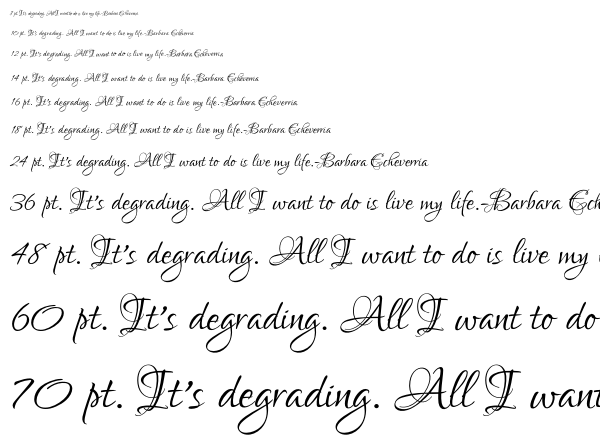 7 pt. It's degrading. All I want to do is live my life.-Barbara Echeverria
10 pt. It's degrading. All I want to do is live my life.-Barbara Echeverria
12 pt. It's degrading. All I want to do is live my life.-Barbara Echeverria
14 pt. It's degrading. All I want to do is live my life.-Barbara Echeverria
16 pt. It's degrading. All I want to do is live my life.-Barbara Echeverria
18 pt. It's degrading. All I want to do is live my life.-Barbara Echeverria
24 pt. It's degrading. All I want to do is live my life.-Barbara Echeverria
36 pt. It's degrading. All I want to do is live my life.-Barbara Ech
48 pt. It's degrading. All I want to do is live my
60 pt. It's degrading. All I want to do
70 pt. It's degrading. All I want